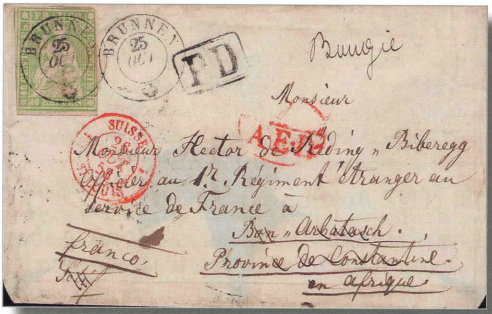 BRUNNEN
25
OCT
BRUNNEN
25
OCT
PD
Bougie
Monsieur
SUISSE
26
ST LOUIS
A.E.D.
Monsieur Hector de Reding „ Biberegg
Officier au 1r. Régiment étranger au
service de France à
Bon „ Arbatasch.
Province de Constantine.
en afrique.
franco.